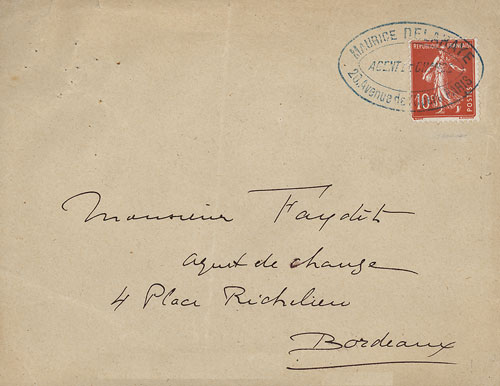 MAURICE DELAHAYE
AGENT DE
20, Avenue de PARIS
REPUBLIQUE FRANÇAISE
10c
POSTES
Monsieur Faydit
agent de change
4 Place Richelieu
Bordeaux